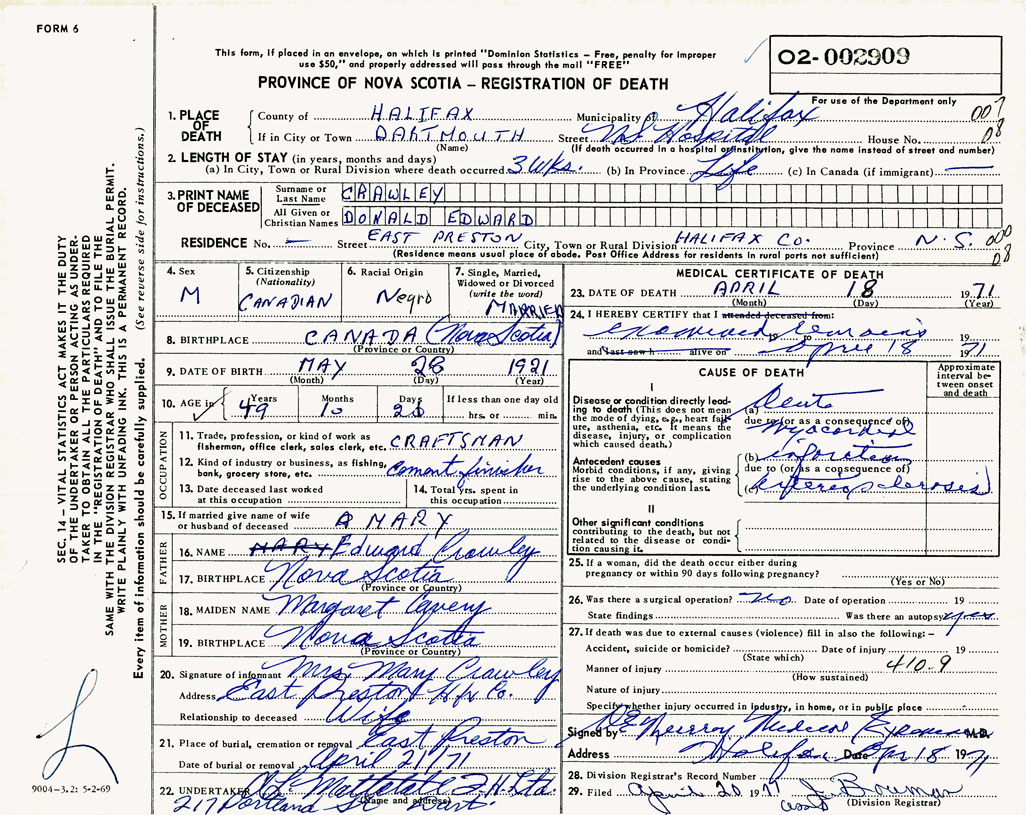 FORM 6
This form, if placed in an envelope, on which is printed "Dominion Statistics – Free, penalty for improper
use $50," and properly addressed will pass through the mail "FREE"
02-002909
PROVINCE OF NOVA SCOTIA – REGISTRATION OF DEATH
For use of the Department only
1. PLACE OF DEATH
County of HALIFAX Municipality of Halifax 007
If in City or Town DARTMOUTH Street Hospital House No. 08
(Name) (If death occurred in a hospital or institution, give the name instead of street and number)
2. LENGTH OF STAY (in years, months and days)
(a) In City, Town or Rural Division where death occurred 3 wks. (b) In Province Life (c) In Canada (if immigrant) —
3. PRINT NAME OF DECEASED
Surname or Last Name CRAWLEY
All Given or Christian Names DONALD EDWARD
RESIDENCE No. — Street EAST PRESTON City, Town or Rural Division HALIFAX CO. Province N.S. 000
(Residence means usual place of abode. Post Office Address for residents in rural parts not sufficient) 08
4. Sex
M
5. Citizenship
(Nationality)
CANADIAN
6. Racial Origin
Negro
7. Single, Married,
Widowed or Divorced
(write the word)
MARRIED
8. BIRTHPLACE CANADA (Nova Scotia)
(Province or Country)
9. DATE OF BIRTH MAY 28 1921
(Month) (Day) (Year)
10. AGE in Years Months Days If less than one day old
49 10 20 hrs. or min.
OCCUPATION
11. Trade, profession, or kind of work as
fisherman, office clerk, sales clerk, etc. CRAFTSMAN
12. Kind of industry or business, as fishing,
bank, grocery store, etc. Cement finisher
13. Date deceased last worked
at this occupation
14. Total yrs. spent in
this occupation
15. If married give name of wife
or husband of deceased MARY
FATHER
16. NAME MARY Edward Crawley
17. BIRTHPLACE Nova Scotia
(Province or Country)
MOTHER
18. MAIDEN NAME Margaret
19. BIRTHPLACE Nova Scotia
(Province or Country)
20. Signature of informant Mrs Mary Crawley
Address East Preston Hfx Co.
Relationship to deceased Wife
21. Place of burial, cremation or removal East Preston
Date of burial or removal April 21/71
22. UNDERTAKER Mattatall F.H. Ltd.
(Name and address)
217 Portland St Dart.
MEDICAL CERTIFICATE OF DEATH
23. DATE OF DEATH APRIL 18 1971
(Month) (Day) (Year)
24. I HEREBY CERTIFY that I attended deceased from:
examined remains 19
and last saw h alive on April 18 1971
CAUSE OF DEATH
Approximate
interval be-
tween onset
and death
I
Disease or condition directly lead-
ing to death (This does not mean
the mode of dying, e.g., heart fail-
ure, asthenia, etc. It means the
disease, injury, or complication
which caused death.)
(a) Acute
due to (or as a consequence of)
Myocardial
Antecedent causes
Morbid conditions, if any, giving
rise to the above cause, stating
the underlying condition last.
(b) infarction
due to (or as a consequence of)
(c) arteriosclerosis
II
Other significant conditions
contributing to the death, but not
related to the disease or condi-
tion causing it.
25. If a woman, did the death occur either during
pregnancy or within 90 days following pregnancy?
(Yes or No)
26. Was there a surgical operation? No Date of operation 19
State findings Was there an autopsy yes
27. If death was due to external causes (violence) fill in also the following: –
Accident, suicide or homicide? Date of injury 19
(State which)
Manner of injury 410.9
(How sustained)
Nature of injury
Specify whether injury occurred in industry, in home, or in public place
Signed by Murray Medical Examiner M.D.
Address Halifax Date Apr 18 1971
28. Division Registrar's Record Number
29. Filed April 20 1971 J. Bowman
(Division Registrar)
SEC. 14 – VITAL STATISTICS ACT MAKES IT THE DUTY
OF THE UNDERTAKER OR PERSON ACTING AS UNDER-
TAKER TO OBTAIN ALL THE PARTICULARS REQUIRED
IN THE "REGISTRATION OF DEATH" AND TO FILE THE
SAME WITH THE DIVISION REGISTRAR WHO SHALL ISSUE THE BURIAL PERMIT.
WRITE PLAINLY WITH UNFADING INK. THIS IS A PERMANENT RECORD.
Every item of information should be carefully supplied. (See reverse side for instructions.)
9004–3.2: 5-2-69